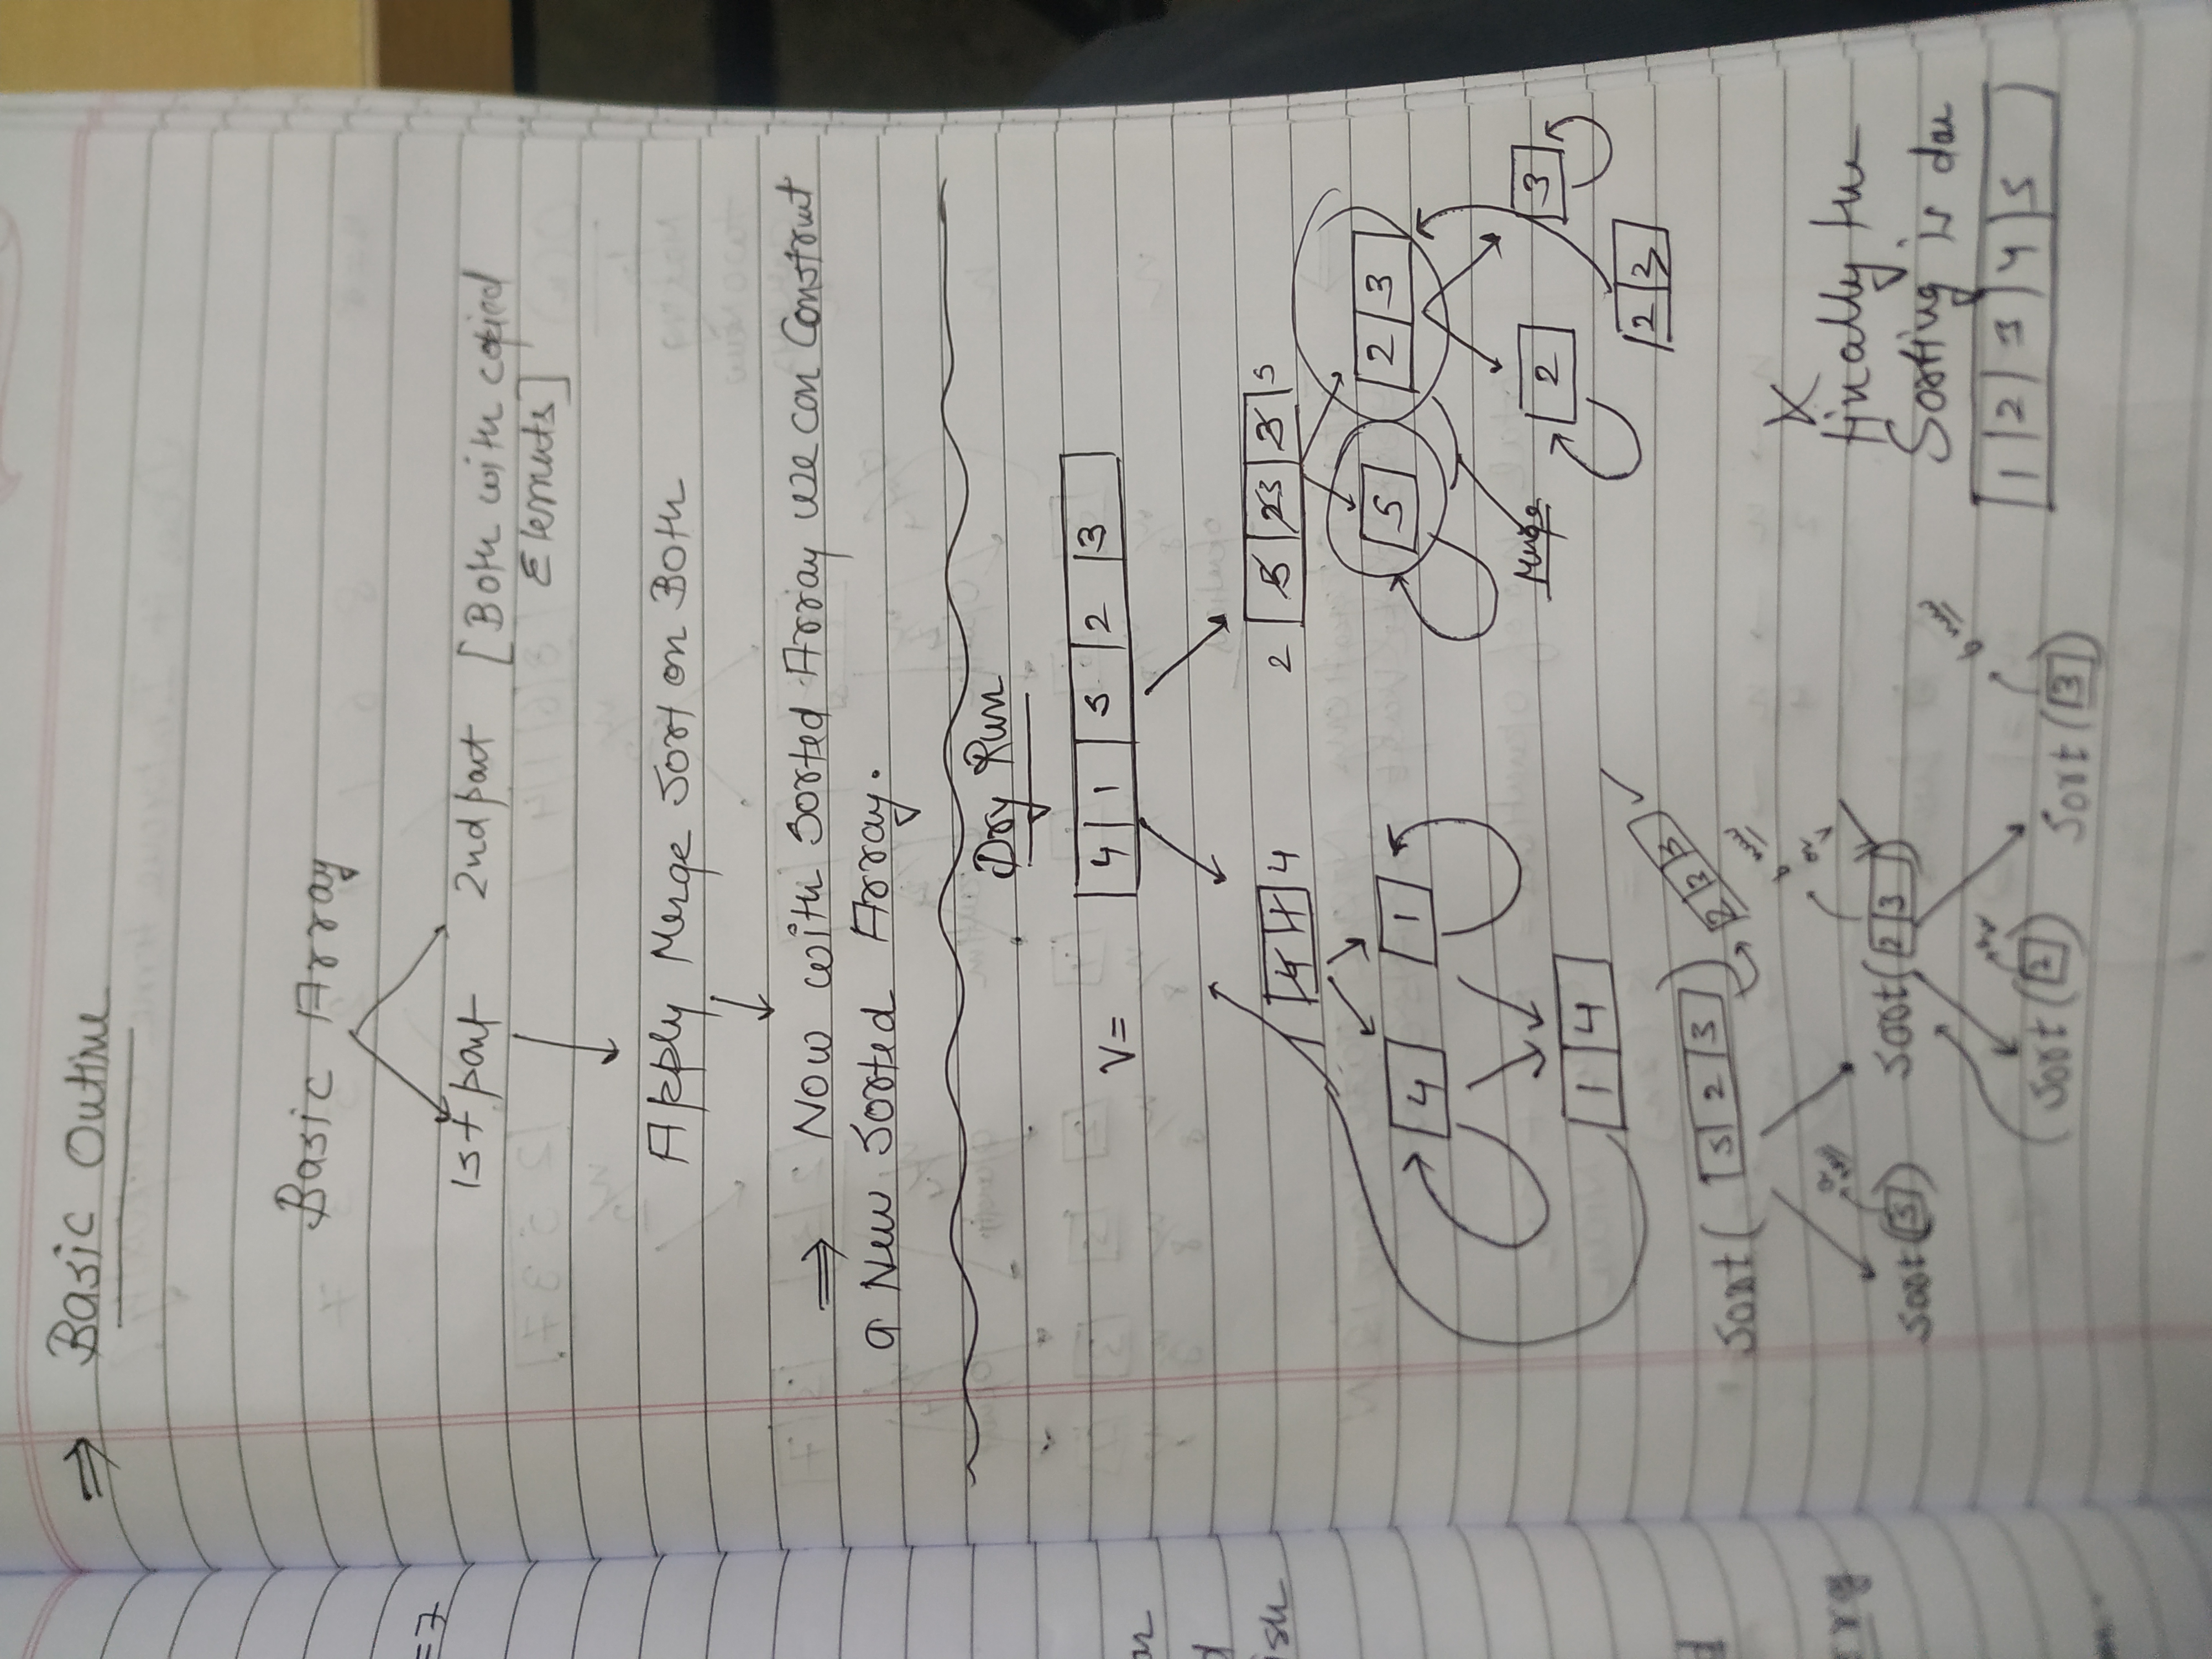 ⇒ Basic Outine
Basic Array
1st part 2nd part [Both with copied
Elements]
Apply Merge Sort on Both
⇒ Now with Sorted Array we can Construct
a New Sorted Array.
Dry Run
V= 4 1 5 2 3
1 4 1 4 2 5 2 3 3 5
4 1 5 2 3
Merge 2 3
1 4
2 3
Sort( 5 2 3 ) 2 3 3
b
Sort(5) Sort( 2 3 )
Sort(2) Sort(3)
b
Finally the
Sorting is
1 2 3 4 5
=7